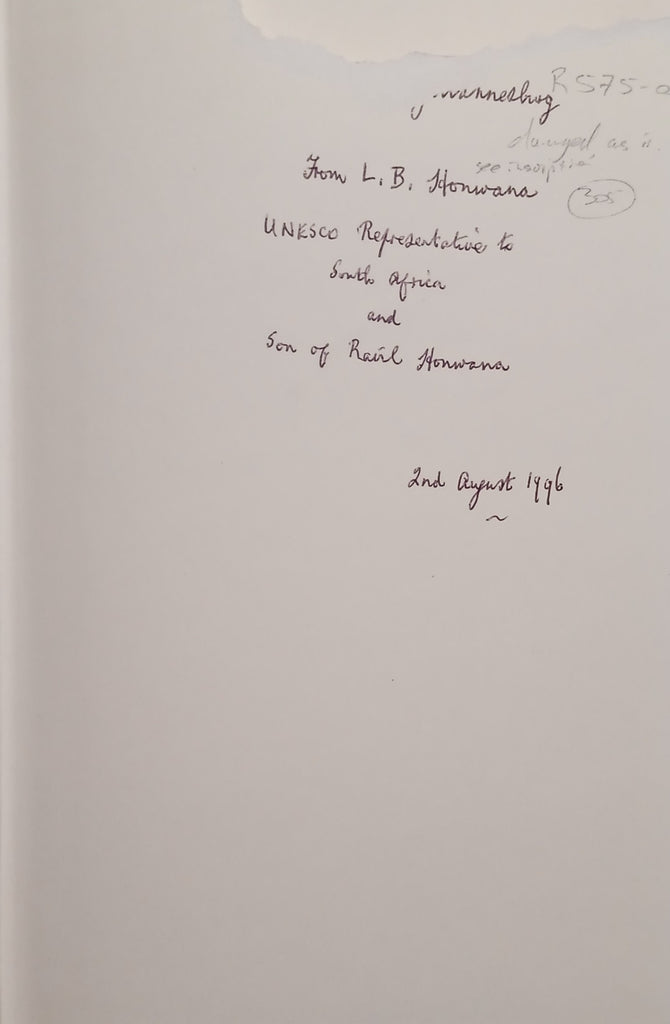 R575-0
Johannesburg
damaged as is
see inscription
From L. B. Honwana
305
UNESCO Representative to
South Africa
and
Son of Raúl Honwana
2nd August 1996